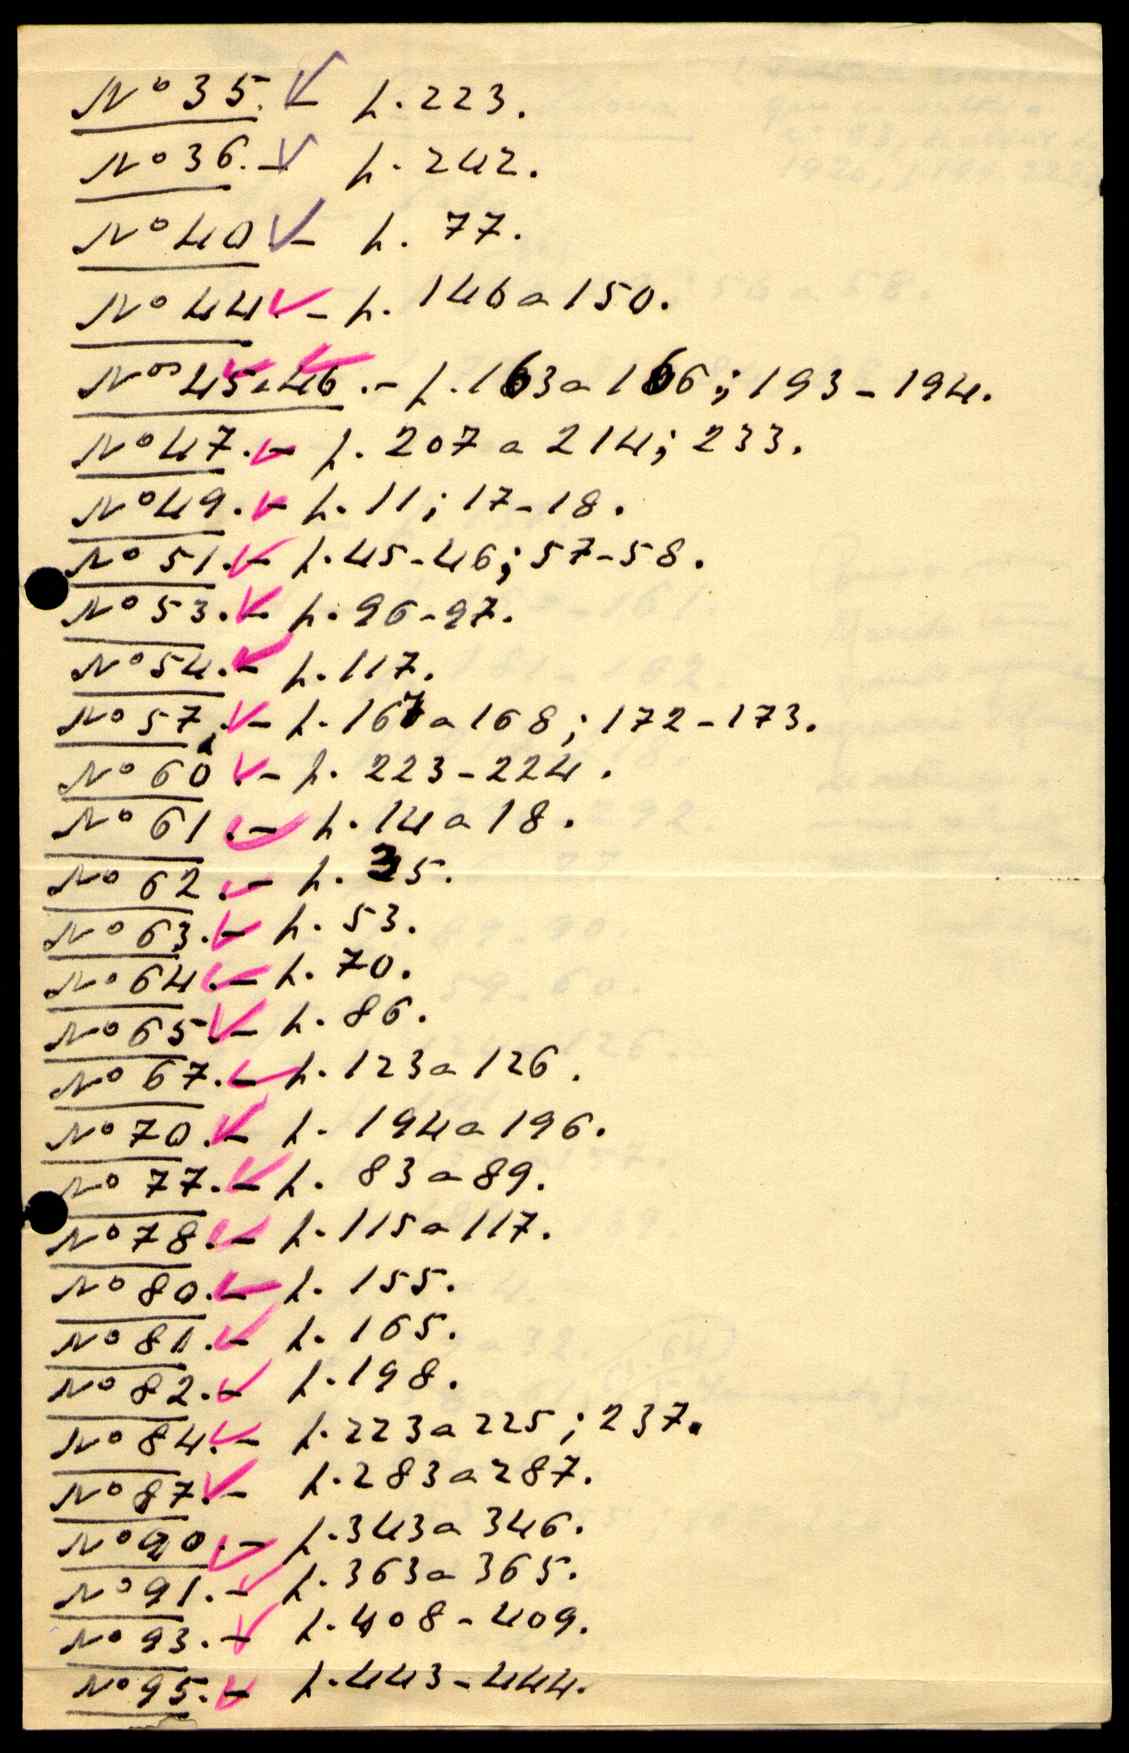 Nº 35. - p. 223.
Nº 36. - p. 242.
Nº 40 - p. 77.
Nº 44 - p. 146 a 150.
Nºs 45-46. - p. 163 a 166; 193-194.
Nº 47. - p. 207 a 214; 233.
Nº 49. - p. 11; 17-18.
Nº 51. - p. 45-46; 57-58.
Nº 53. - p. 96-97.
Nº 54. - p. 117.
Nº 57. - p. 167 a 168; 172-173.
Nº 60. - p. 223-224.
Nº 61. - p. 14 a 18.
Nº 62. - p. 35.
Nº 63. - p. 53.
Nº 64. - p. 70.
Nº 65 - p. 86.
Nº 67. - p. 123 a 126.
Nº 70. - p. 194 a 196.
Nº 77. - p. 83 a 89.
Nº 78. - p. 115 a 117.
Nº 80. - p. 155.
Nº 81. - p. 165.
Nº 82. - p. 198.
Nº 84. - p. 223 a 225; 237.
Nº 87. - p. 283 a 287.
Nº 90. - p. 343 a 346.
Nº 91. - p. 363 a 365.
Nº 93. - p. 408-409.
Nº 95. - p. 443-444.